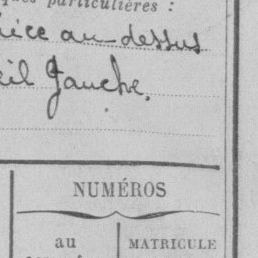 particulières :
au-dessus
Gauche.
NUMÉROS
au
MATRICULE